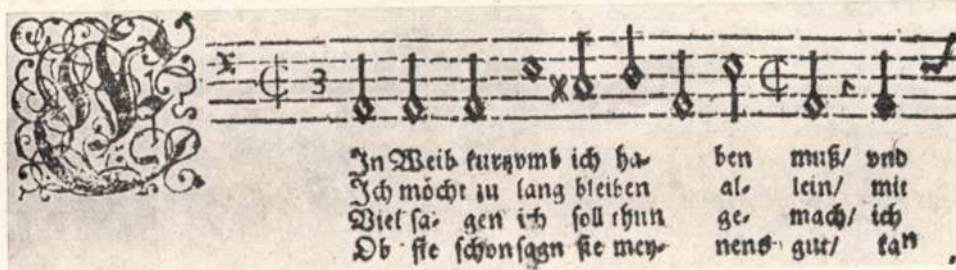 3
EIn Weib kurtzvmb ich ha- ben muß/ vnd
Ich möcht zu lang bleiben al- lein/ mit
Viel sa- gen ich soll thun ge- mach/ ich
Ob sie schon sagn sie mey- nens gut/ kan